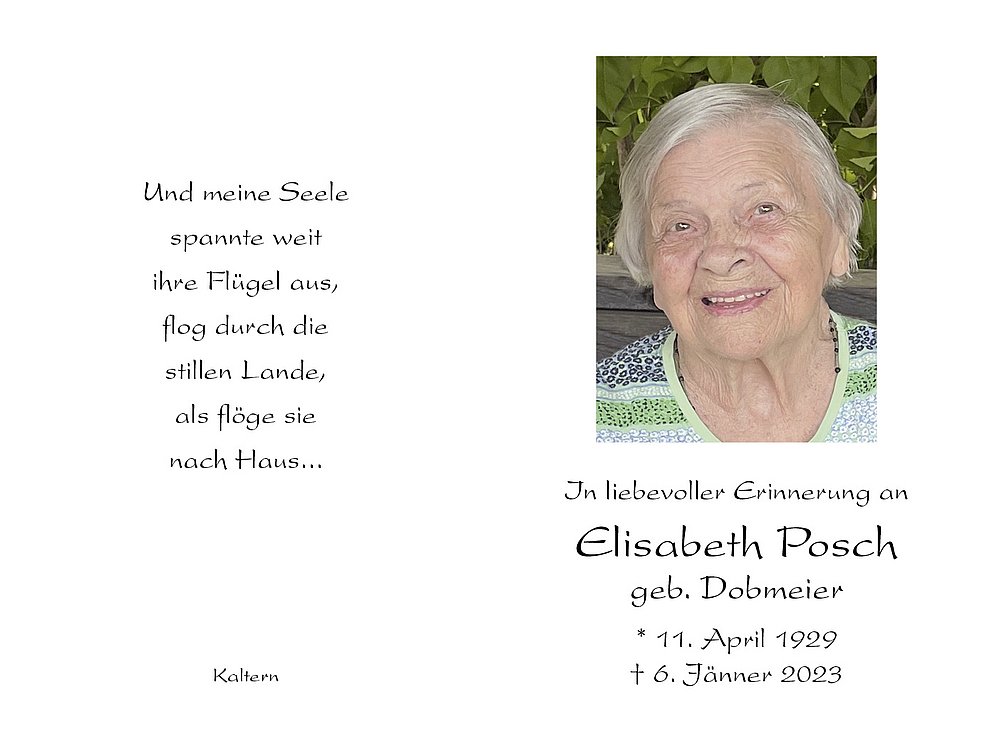 Und meine Seele
spannte weit
ihre Flügel aus,
flog durch die
stillen Lande,
als flöge sie
nach Haus...
Kaltern
In liebevoller Erinnerung an
Elisabeth Posch
geb. Dobmeier
* 11. April 1929
† 6. Jänner 2023